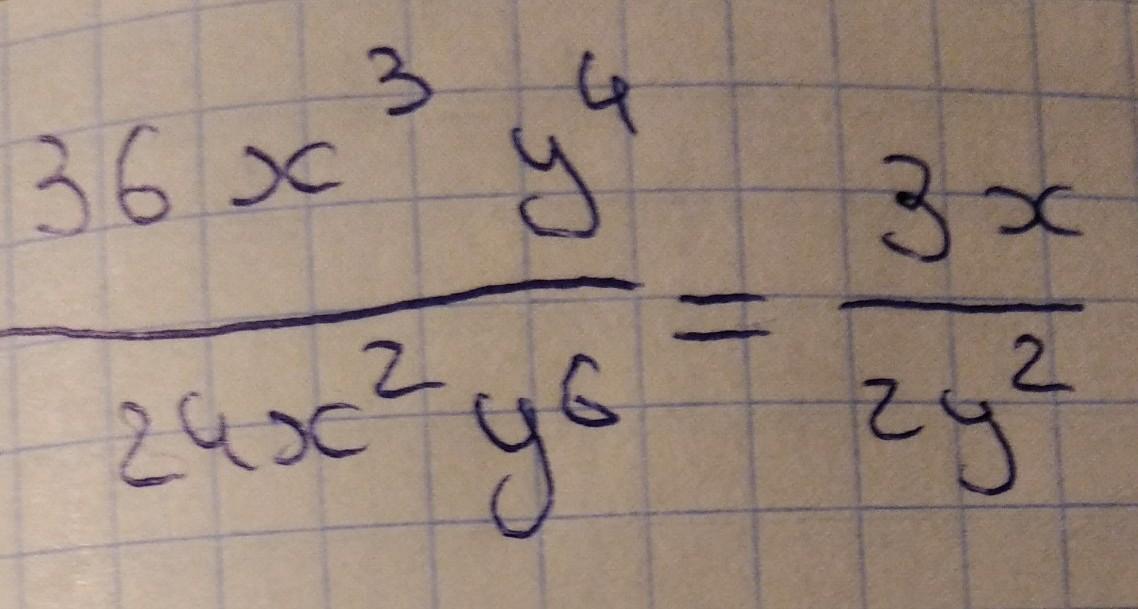 36x³y⁴ / 24x²y⁶ = 3x / 2y²